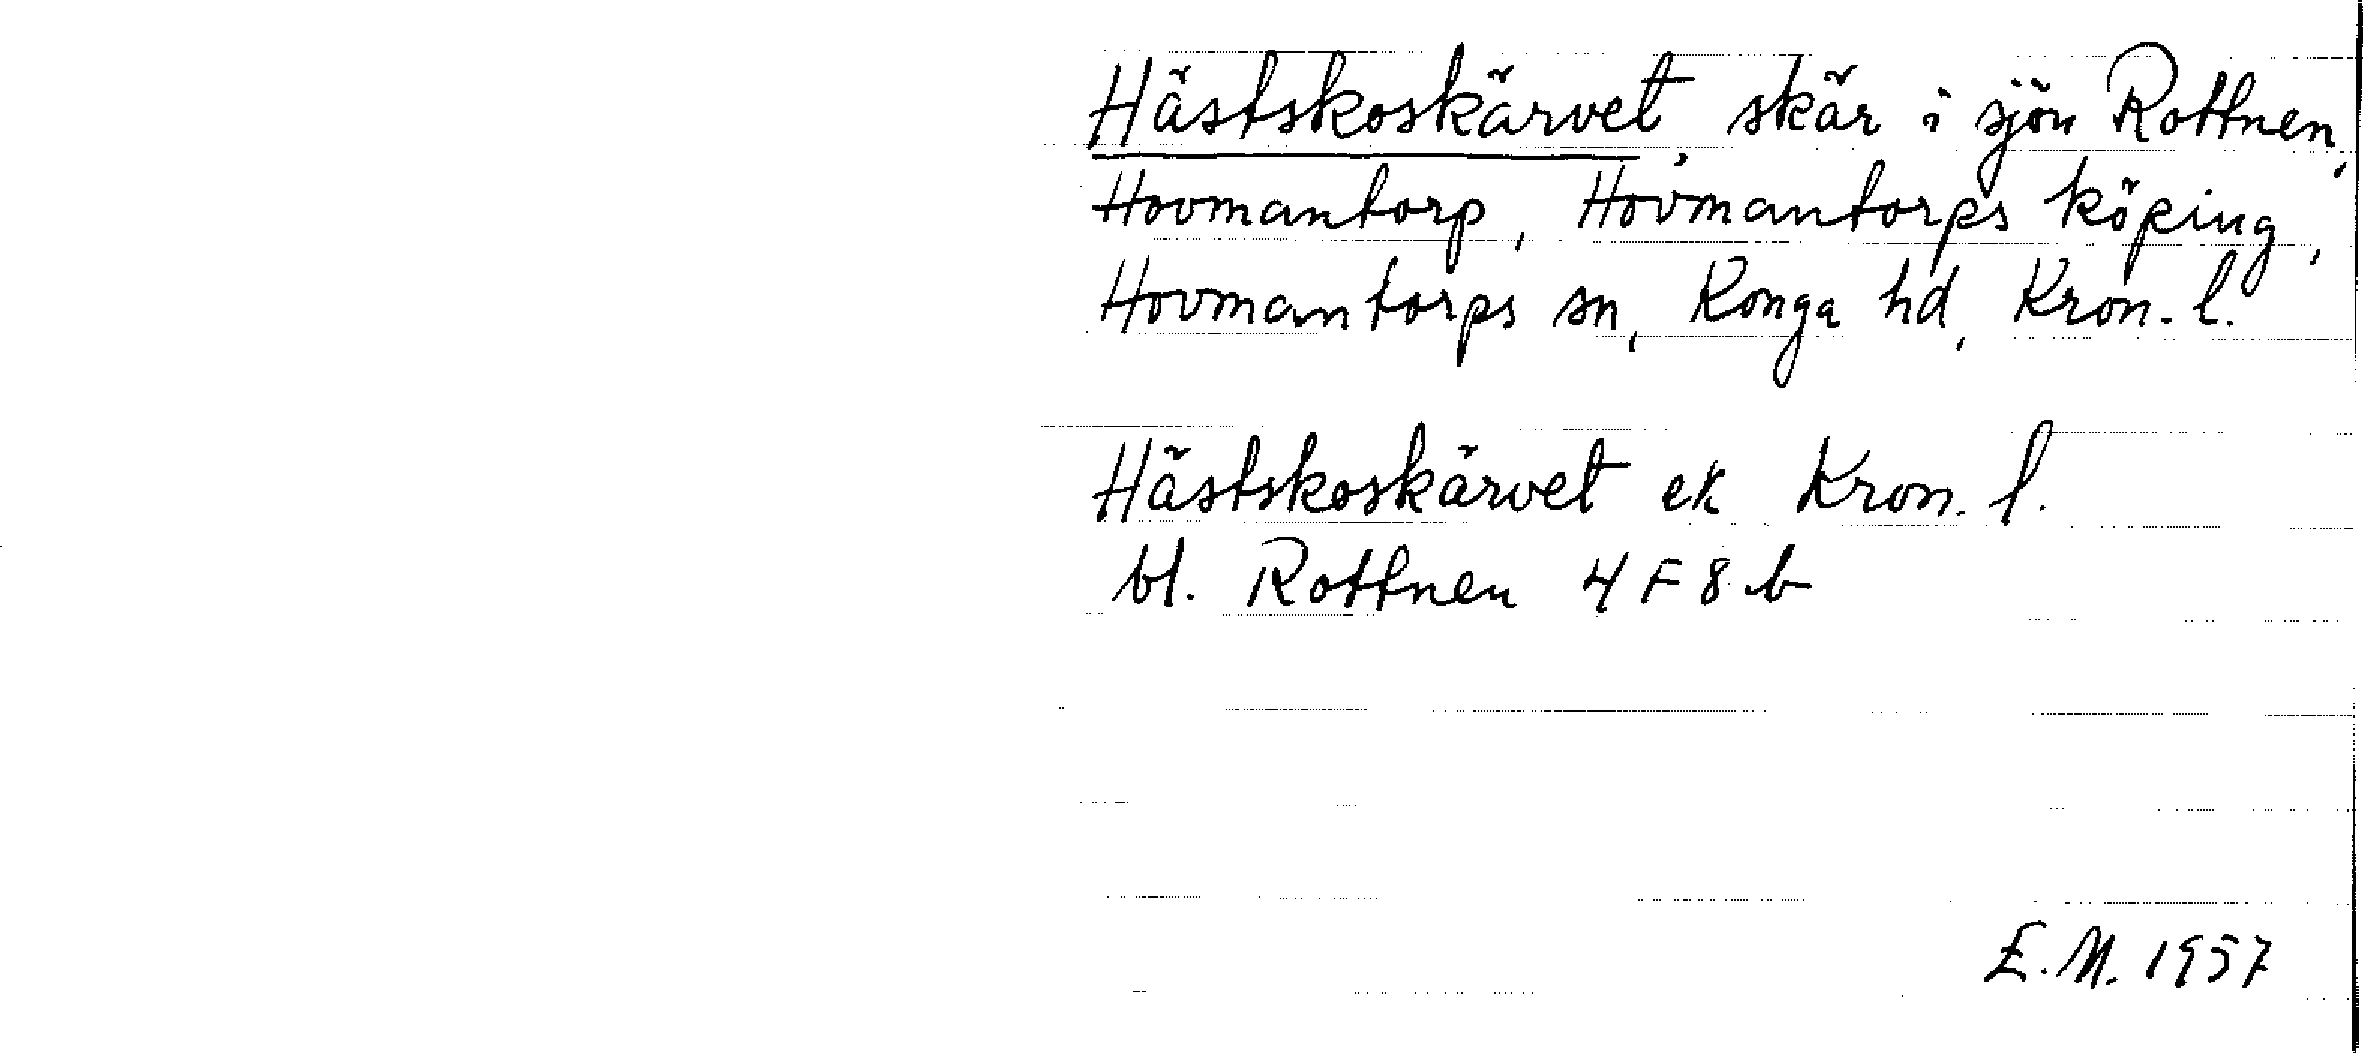 Hästskoskärvet, skär i sjön Rottnen,
Hovmantorp, Hovmantorps köping,
Hovmantorps sn, Konga hd, Kron. l.
Hästskoskärvet ek Kron. l.
bl. Rottnen 4 F 8 b
E. M. 1957